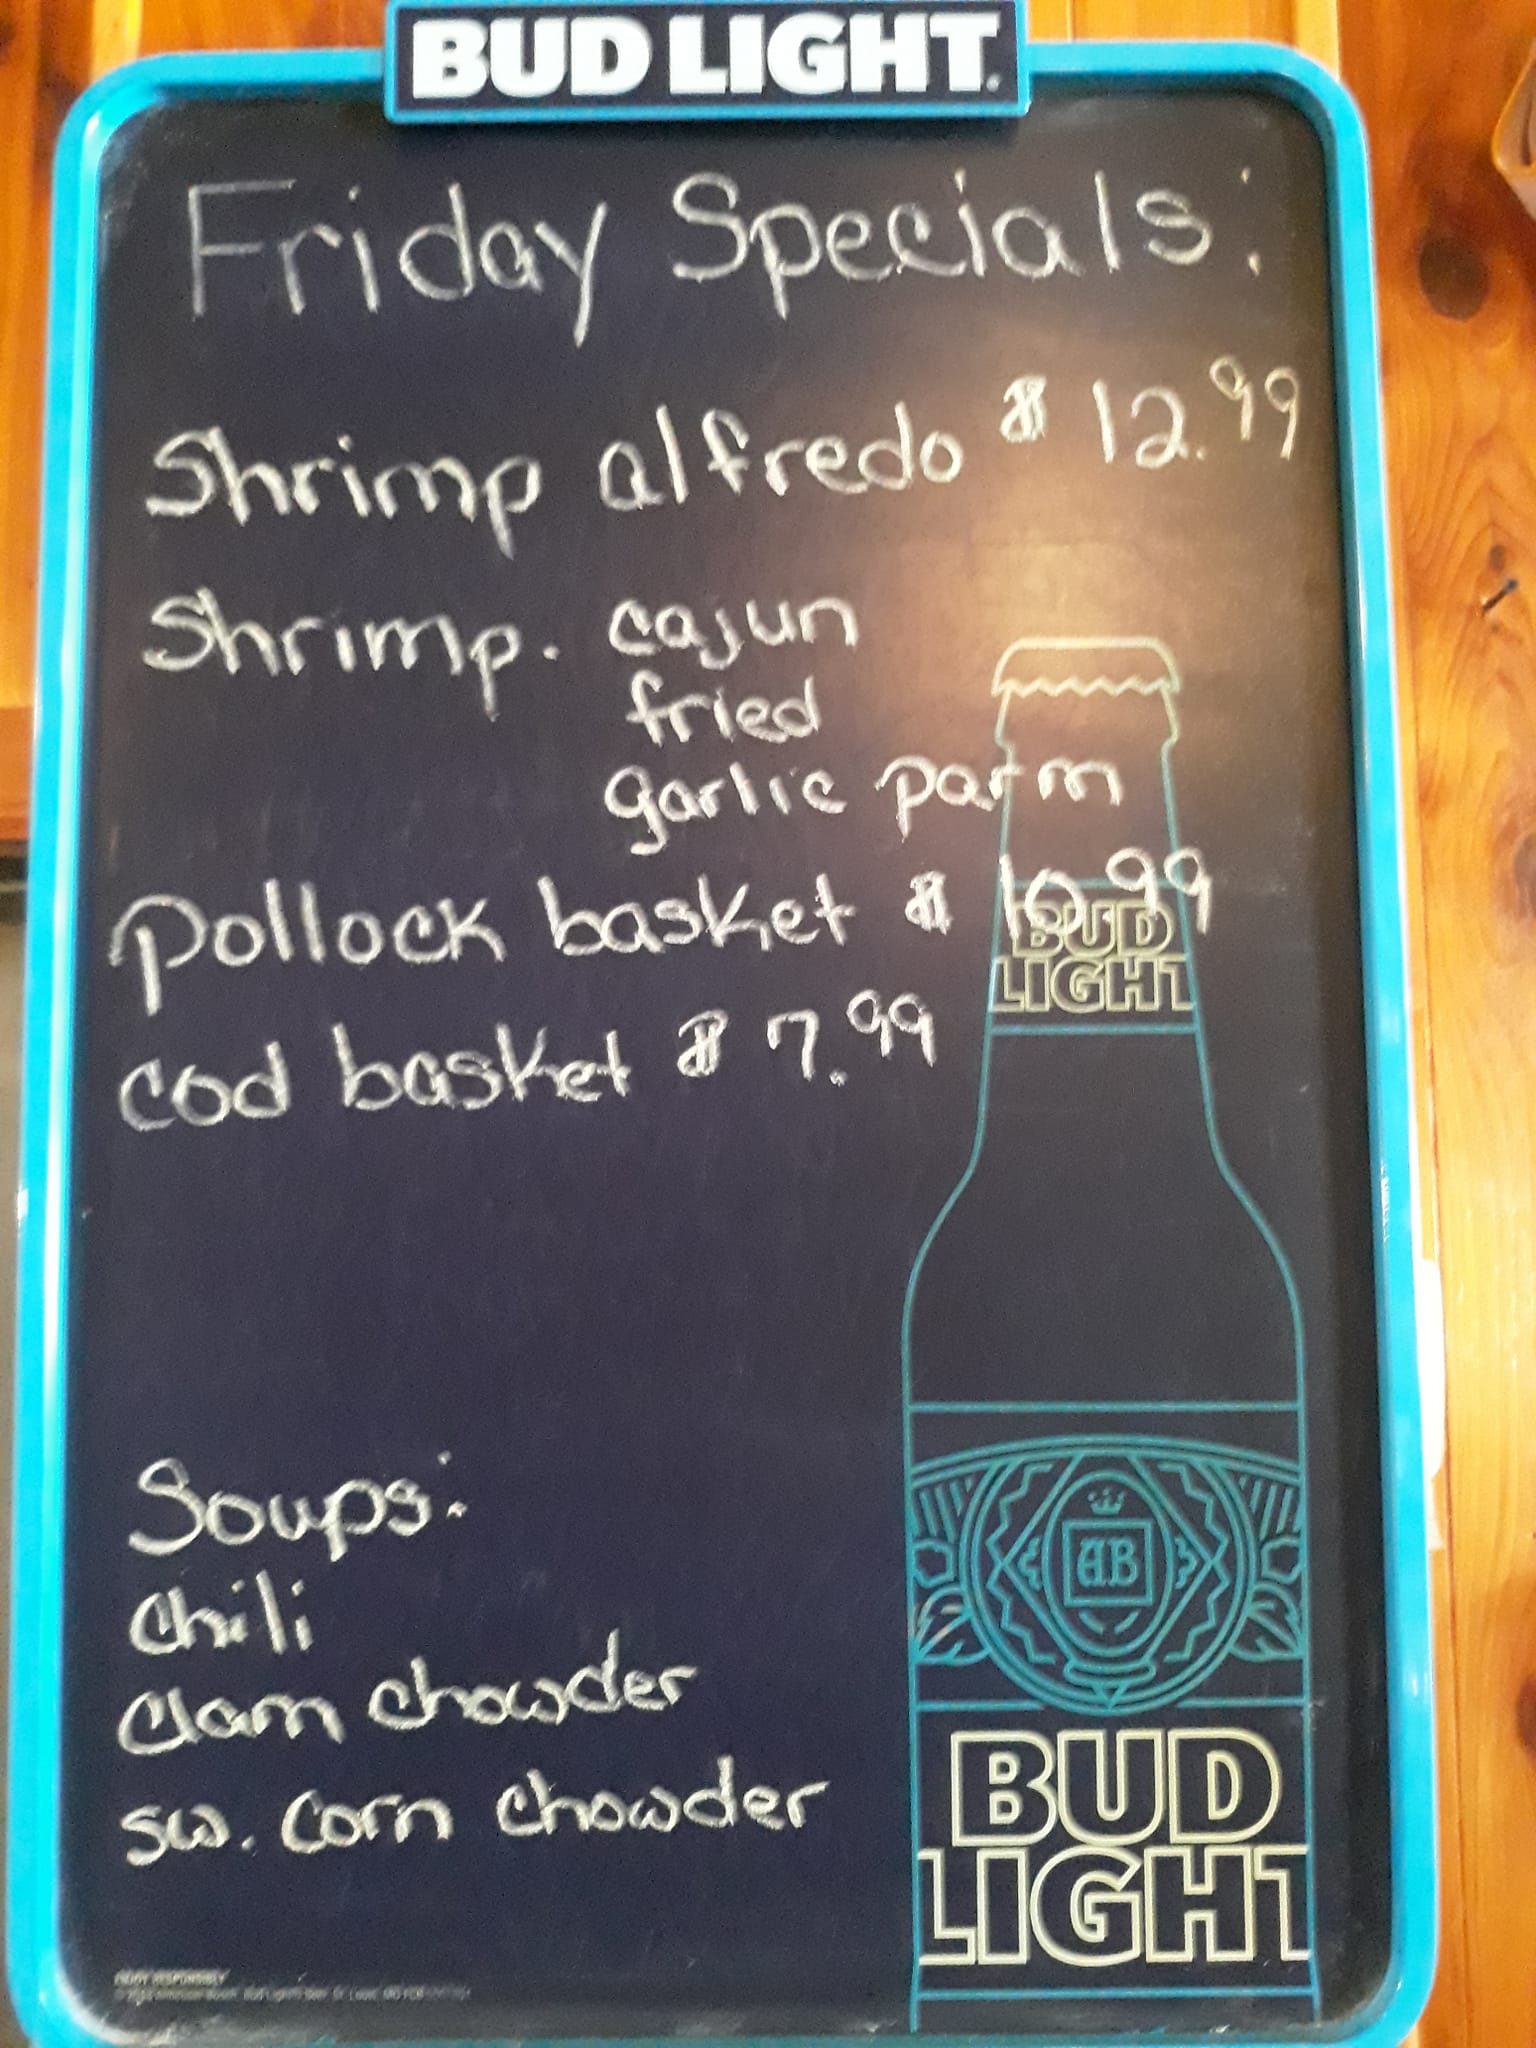 BUD LIGHT.
Friday Specials:
Shrimp alfredo $12.99
Shrimp. cajun
fried
garlic parm
Pollock basket $10.99
BUD
LIGHT
cod basket $7.99
Soups:
Chili
Clam chowder
sw. corn chowder
AB
BUD
LIGHT
ENJOY RESPONSIBLY